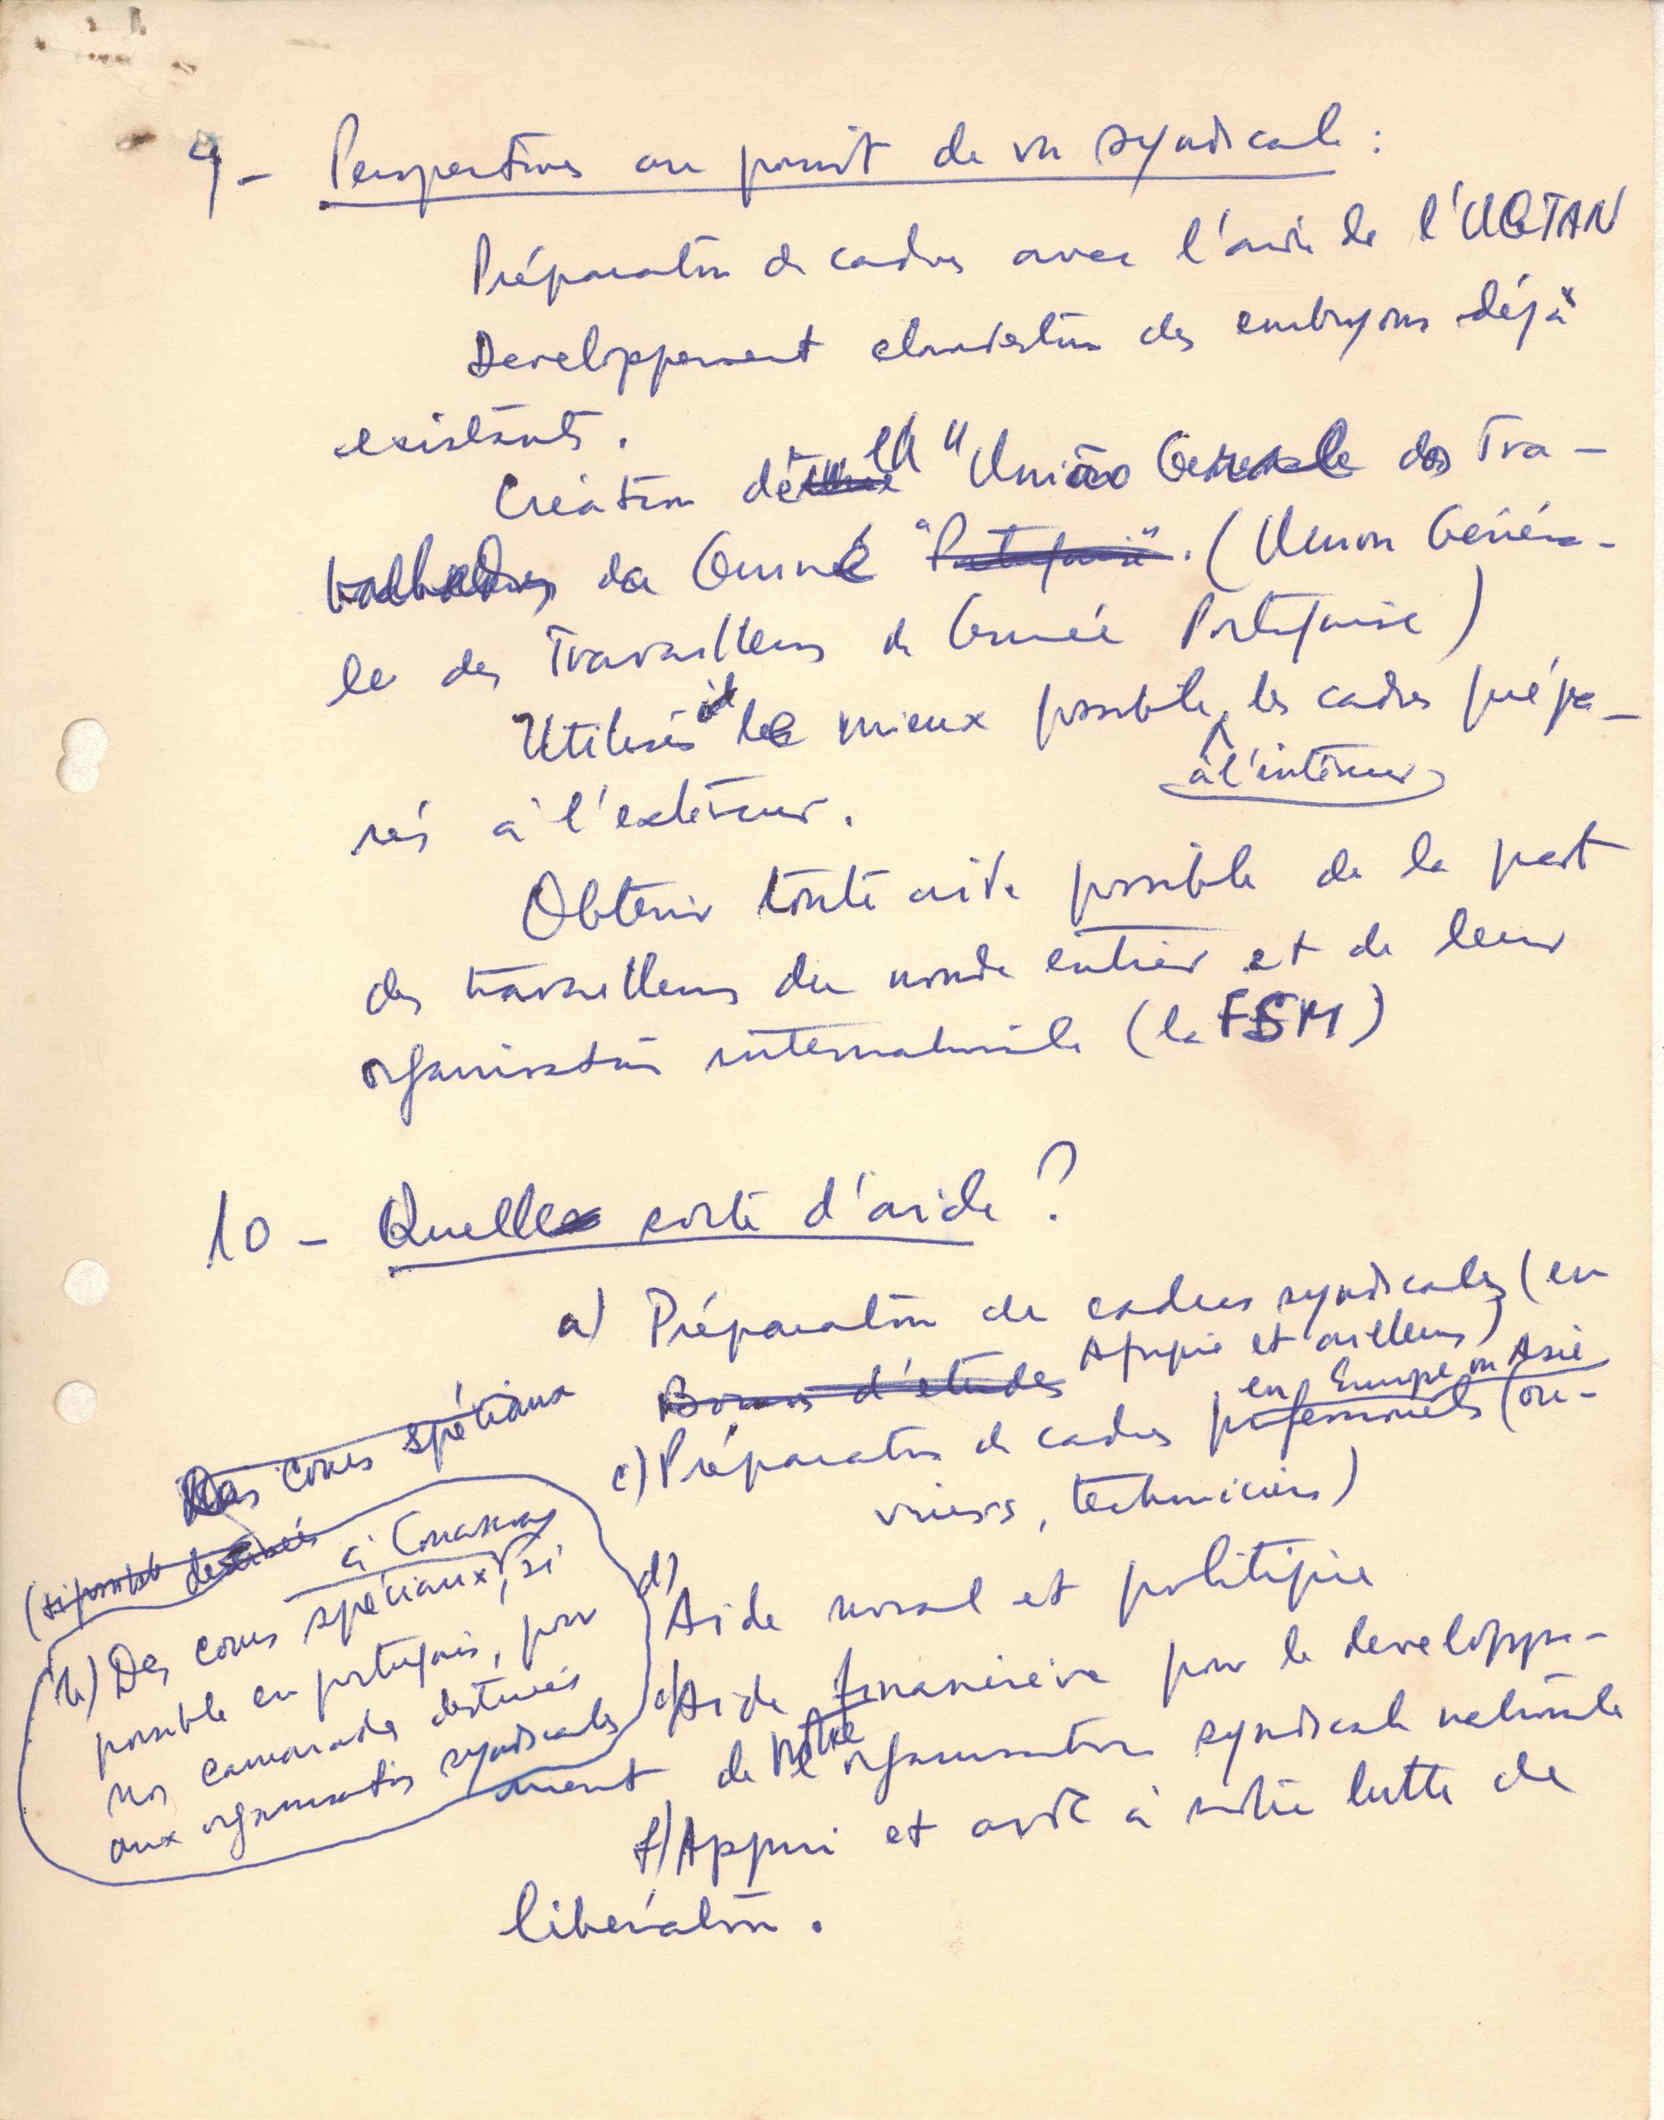 9 - Perspectives au point de vue syndicale :
Préparation de cadres avec l'aide de l'UGTAN
Developpement clandestin des embryons déjà
existants.
Création de la "União Geral dos Tra-
balhadores da Guiné "Portuguesa". (Union Généra-
le des Travailleurs de Guinée Portugaise)
Utiliser le mieux possible, les cadres prépa-
à l'intérieur
rés à l'extérieur.
Obtenir toute aide possible de la part
des travailleurs du monde entier et de leur
organisation internationale (la FSM)
10 - Quelle sorte d'aide ?
a) Préparation de cadres syndicales (en
Afrique et ailleurs)
Bourses d'études
en Europe ou Asie
c) Préparation de cadres professionnels (ou-
vriers, techniciens)
Des cours spéciaux
(si possible destinés
à Conakry
b) Des cours spéciaux, si
possible en portugais, pour
nos camarades destinés
aux organisations syndicales
d) Aide moral et politique
e) Aide financière pour le developpe-
ment de notre organisation syndicale nationale
f) Appui et aide à notre lutte de
libération.